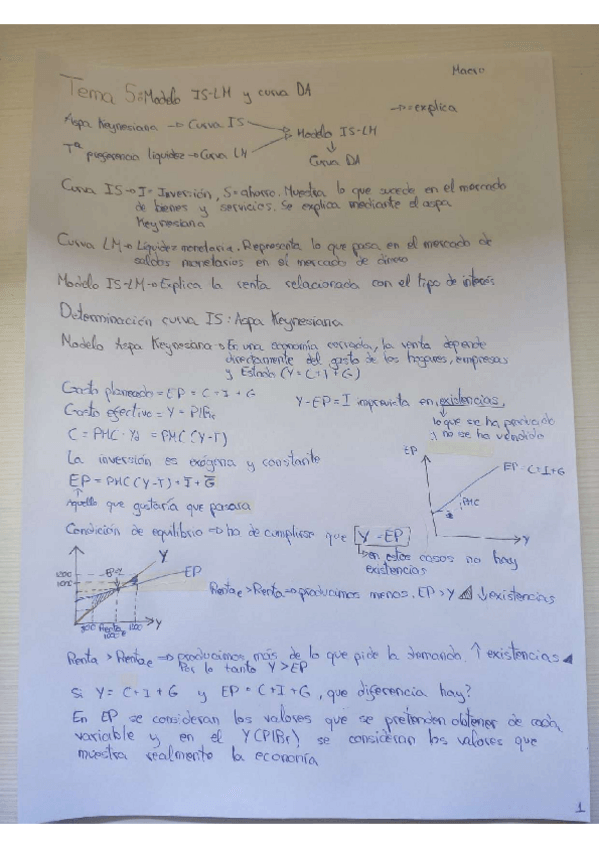 Macro
Tema 5: Modelo IS-LM y curva DA
→ = explica
Aspa Keynesiana → Curva IS
Modelo IS-LM
Tª preferencia liquidez → Curva LM
Curva DA
Curva IS → I = Inversión, S = ahorro. Muestra lo que sucede en el mercado
de bienes y servicios. Se explica mediante el aspa
Keynesiana
Curva LM → Liquidez monetaria. Representa lo que pasa en el mercado de
saldos monetarios en el mercado de dinero
Modelo IS-LM → Explica la renta relacionada con el tipo de interés
Determinación curva IS: Aspa Keynesiana
Modelo Aspa Keynesiana → En una economía cerrada, la renta depende
directamente del gasto de los hogares, empresas
y Estado (Y = C + I + G)
Gasto planeado = EP = C + I + G
Y - EP = I imprevista en existencias,
Gasto efectivo = Y = PIBr
lo que se ha producido
y no se ha vendido
C = PMC · Yd = PMC (Y-T)
La inversión es exógena y constante
EP = PMC (Y-T) + I + G
EP
EP = C+I+G
PMC
Y
aquello que gustaría que pasara
Condición de equilibrio → ha de cumplirse que [Y = EP]
en estos casos no hay
existencias
Y
EP
Y
Renta
Rentae > Renta → producimos menos. EP > Y ↓ existencias
Renta > Rentae → producimos más de lo que pide la demanda. ↑ existencias
Por lo tanto Y > EP
Si Y = C + I + G y EP = C + I + G, que diferencia hay?
En EP se consideran los valores que se pretenden obtener de cada
variable y en el Y (PIBr) se consideran los valores que
muestra realmente la economía
1